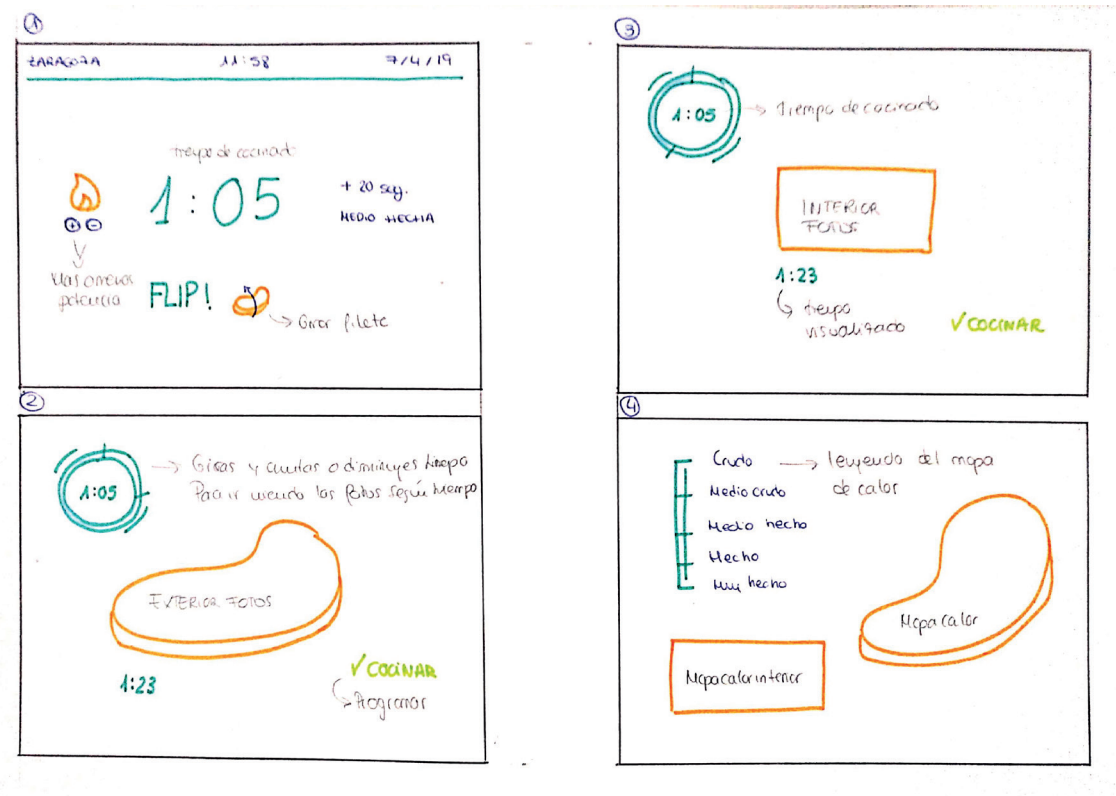 1
ZARAGOZA 11:58 7/4/19
Tiempo de cocinado
1:05
+ 20 seg.
MEDIO HECHA
+ -
Mas o menos
potencia
FLIP!
Girar filete
2
1:05
Giras y aumentas o disminuyes tiempo
Para ir viendo las fotos según tiempo
EXTERIOR FOTOS
1:23
✓ COCINAR
Programar
3
1:05
Tiempo de cocinado
INTERIOR
FOTOS
1:23
tiempo
visualizado
✓ COCINAR
4
Crudo
leyenda del mapa
de calor
Medio crudo
Medio hecho
Hecho
Muy hecho
Mapa calor
Mapa calor interior